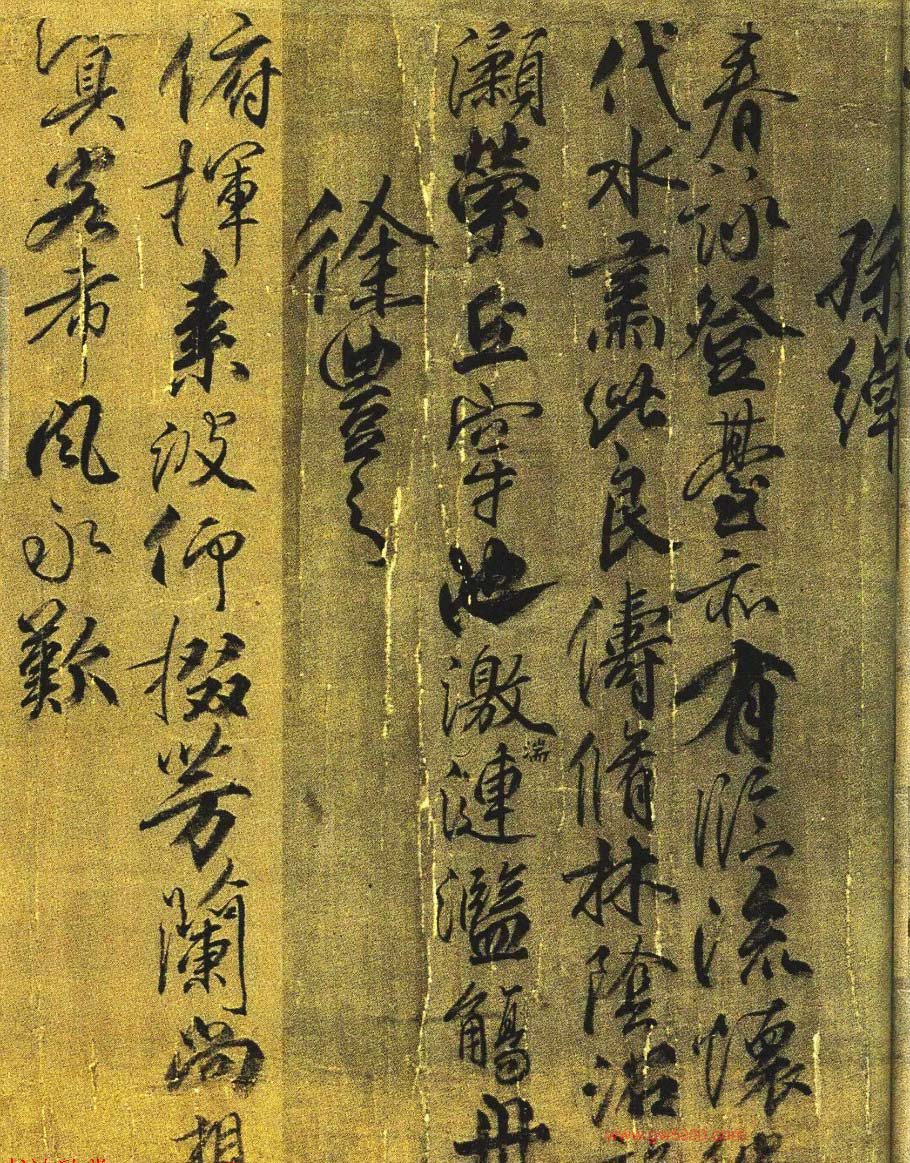 孫綽
春詠登臺亦有臨流懷
代水肅此良儔脩林陰沼
瀨縈丘穿池激湍漣濫觴舟
徐豐之
俯揮素波仰掇芳蘭尚想
客希風永歎